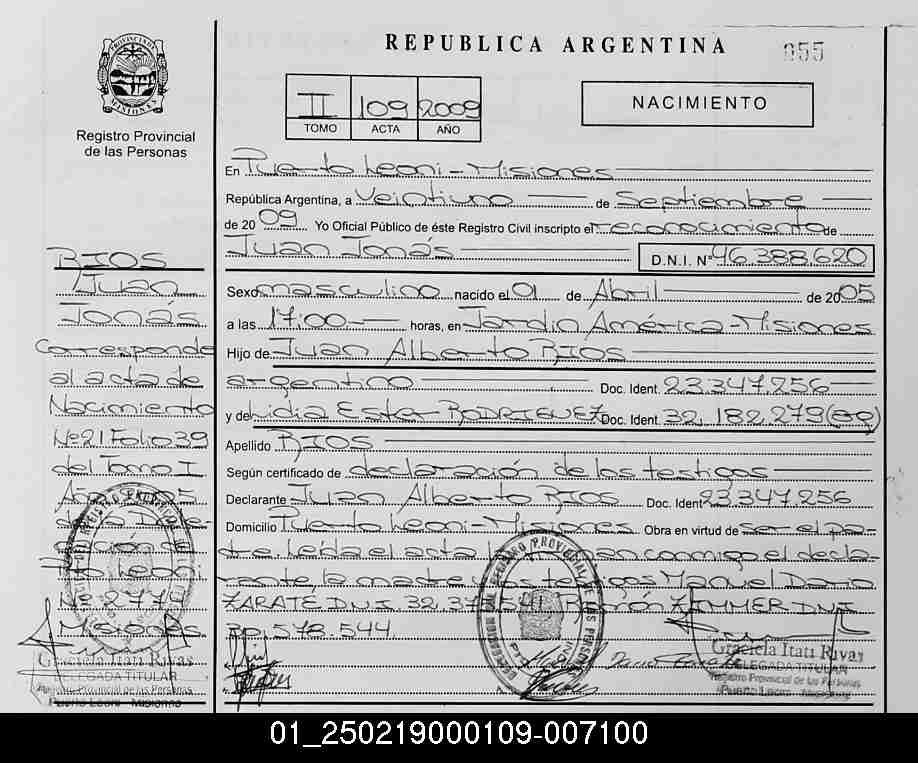 REPUBLICA ARGENTINA
055
PROVINCIA DE MISIONES
Registro Provincial
de las Personas
II 109 2009
TOMO ACTA AÑO
NACIMIENTO
En Puerto Leoni - Misiones
República Argentina, a Veintiuno de Septiembre
de 2009 Yo Oficial Público de éste Registro Civil inscripto el reconocimiento de
Juan Jonás D.N.I. Nº 46.388.620
Sexo masculino nacido el 01 de Abril de 2005
a las 17:00 horas, en Jardín América - Misiones
Hijo de Juan Alberto RIOS
argentino Doc. Ident. 23.347.256
y de Lidia Ester RODRIGUEZ Doc. Ident. 32.182.279
Apellido RIOS
Según certificado de declaración de los testigos
Declarante Juan Alberto RIOS Doc. Ident 23.347.256
Domicilio Puerto Leoni - Misiones Obra en virtud de ser el pa-
dre Leída el acta conmigo el decla-
rante la madre y los testigos Manuel Dario
ZARATE D.N.I. 32.37 Ramón ZIMMER DNI
30.578.544.
RIOS
Juan
Jonás
Corresponde
al acta de
Nacimiento
Nº 21 Folio 39
del Tomo I
Año
de la Dele-
gación de
Pto Leoni
Misiones
Graciela Itatí Rivas
DELEGADA TITULAR
Registro Provincial de las Personas
Puerto Leoni - Misiones
REGISTRO PROVINCIAL DE LAS PERSONAS
Graciela Itatí Rivas
DELEGADA TITULAR
Registro Provincial de las Personas
Puerto Leoni - Misiones
01_250219000109-007100